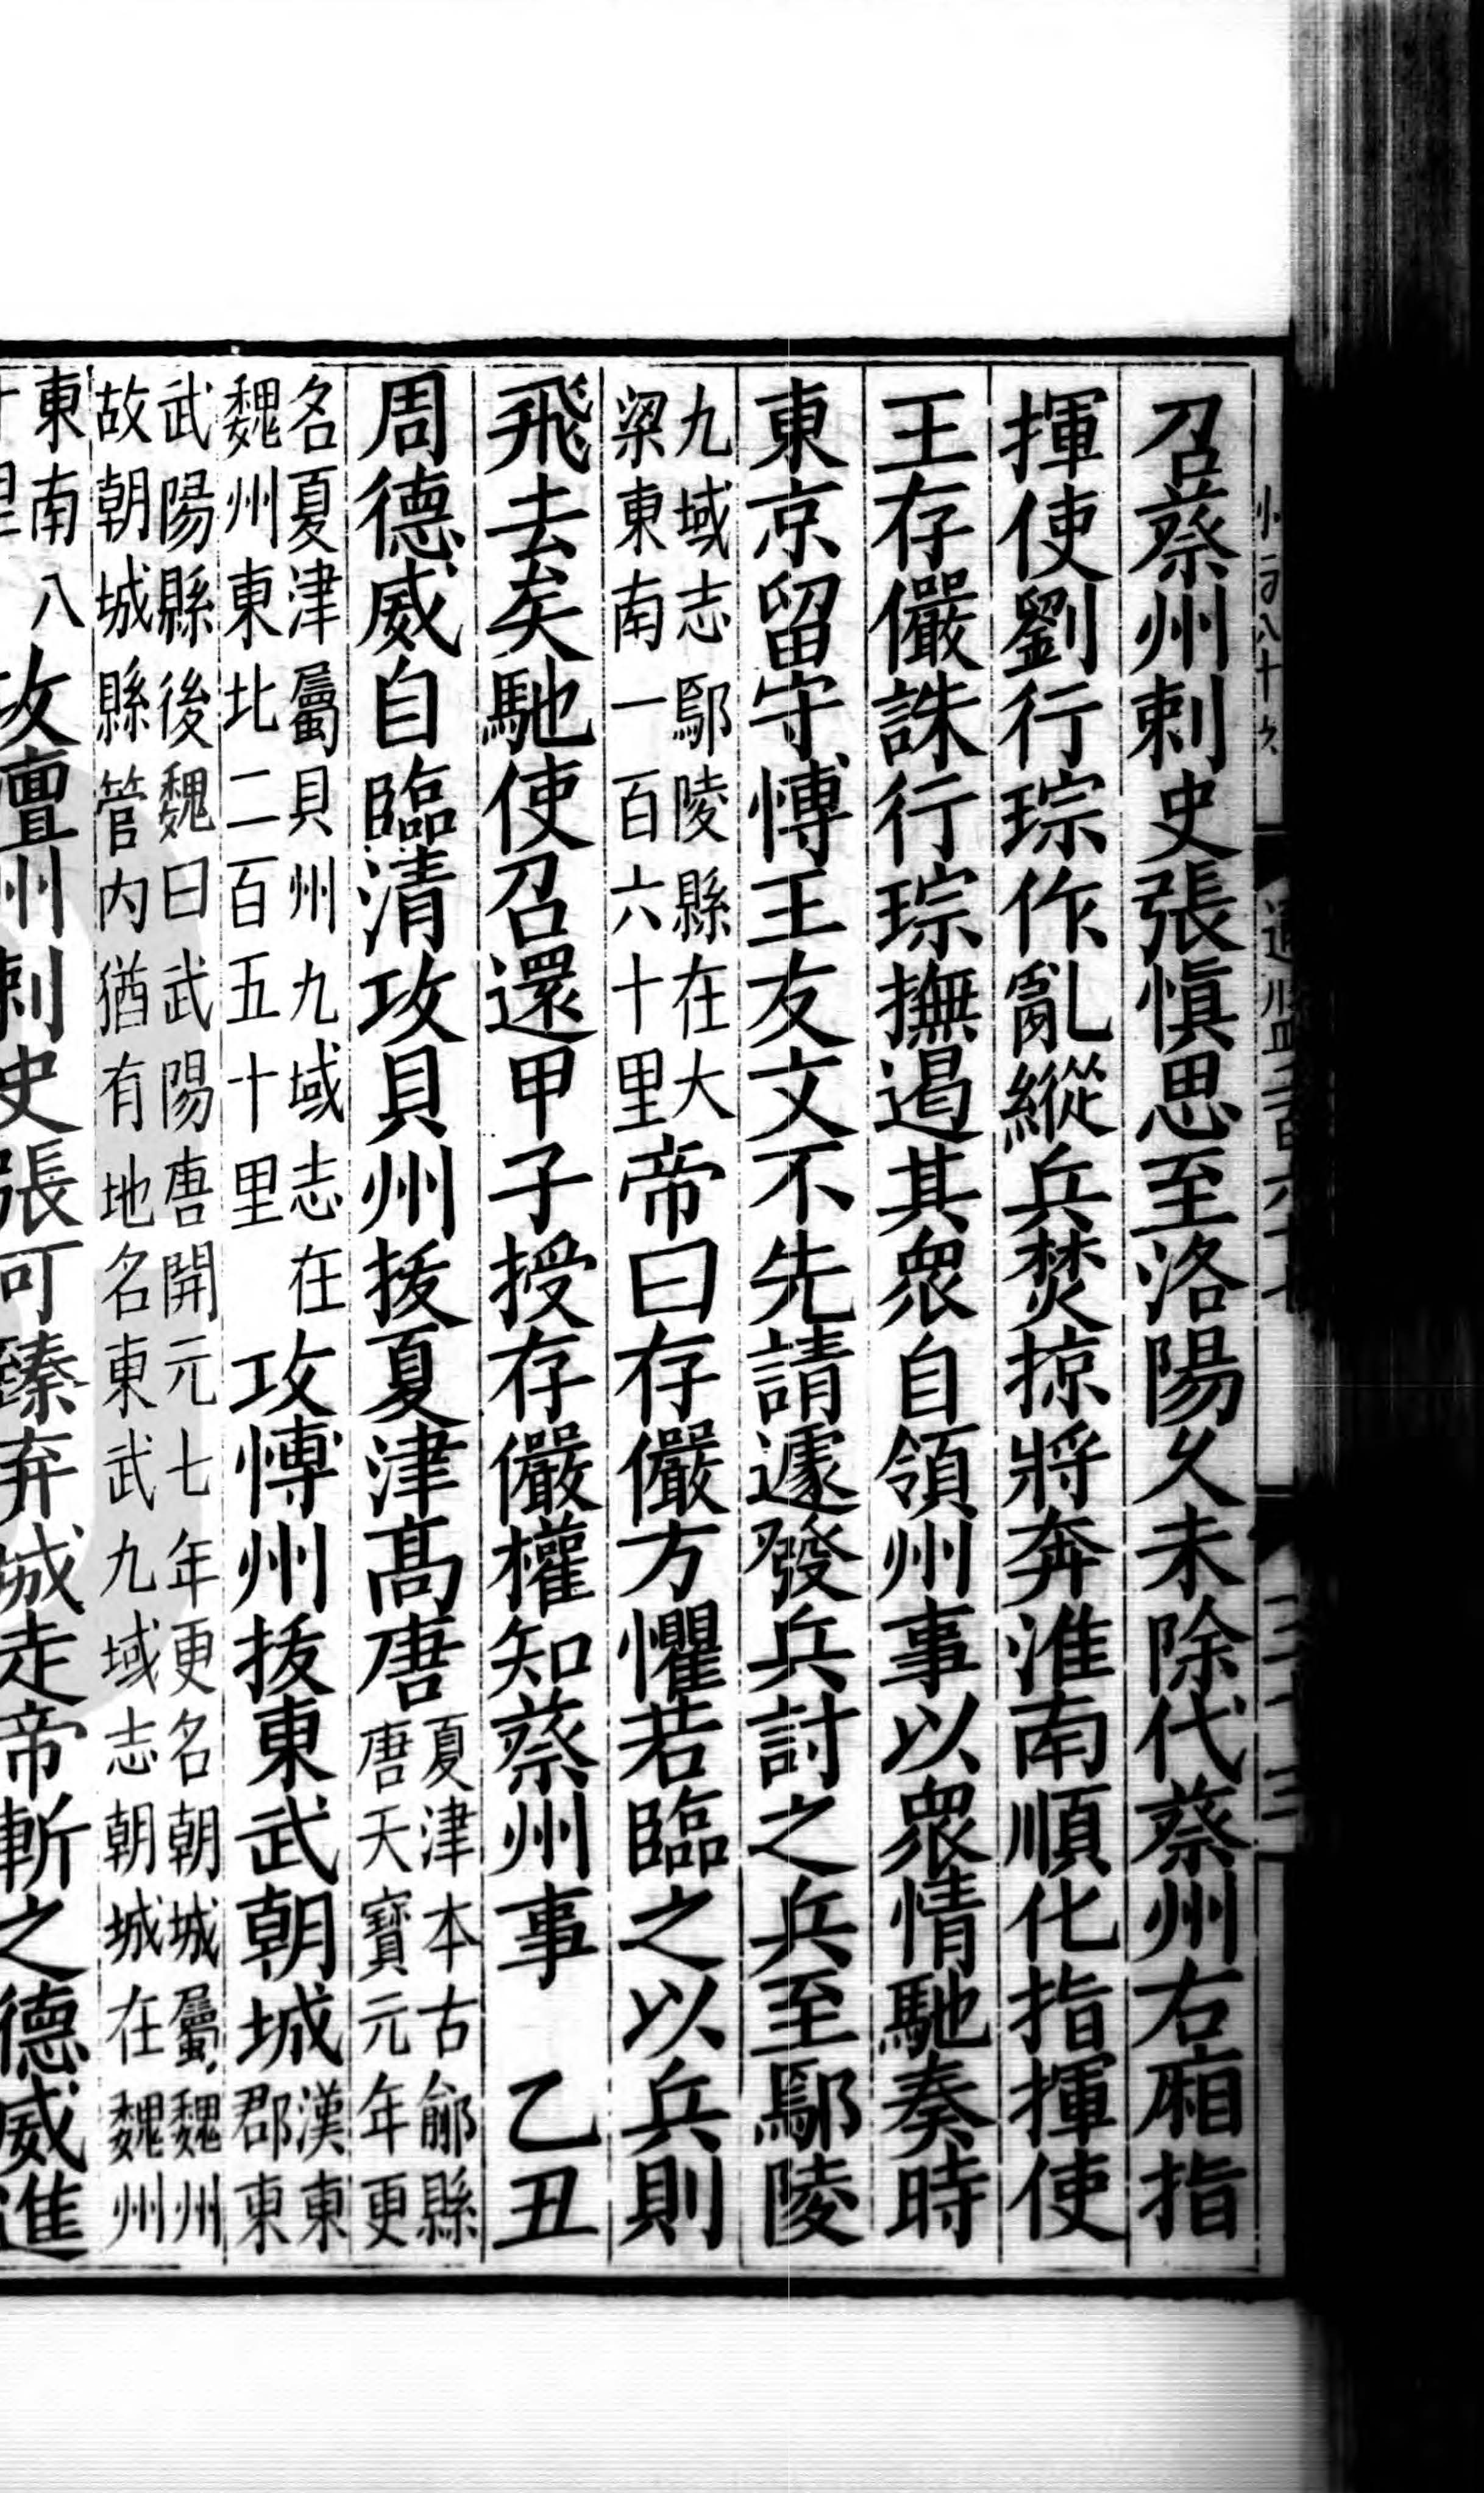 召蔡州刺史張慎思至洛陽久未除代蔡州右廂指
揮使劉行琮作亂縱兵焚掠將奔淮南順化指揮使
王存儼誅行琮撫遏其衆自領州事以衆情馳奏時
東京留守博王友文不先請遽發兵討之兵至鄢陵
九域志鄢陵縣在大
梁東南一百六十里
帝曰存儼方懼若臨之以兵則
飛去矣馳使召還甲子授存儼權知蔡州事 乙丑
周德威自臨清攻貝州拔夏津高唐
夏津本古鄃縣
唐天寶元年更
名夏津屬貝州九域志在
魏州東北二百五十里
攻博州拔東武朝城
漢東
郡東
武陽縣後魏曰武陽唐開元七年更名朝城屬魏州
故朝城縣管内猶有地名東武九域志朝城在魏州
東南八
十里
攻澶州刺史張可臻弃城走帝斬之德威進